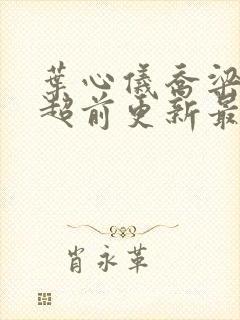 葉心儀喬梁
超前更新最
肖永革